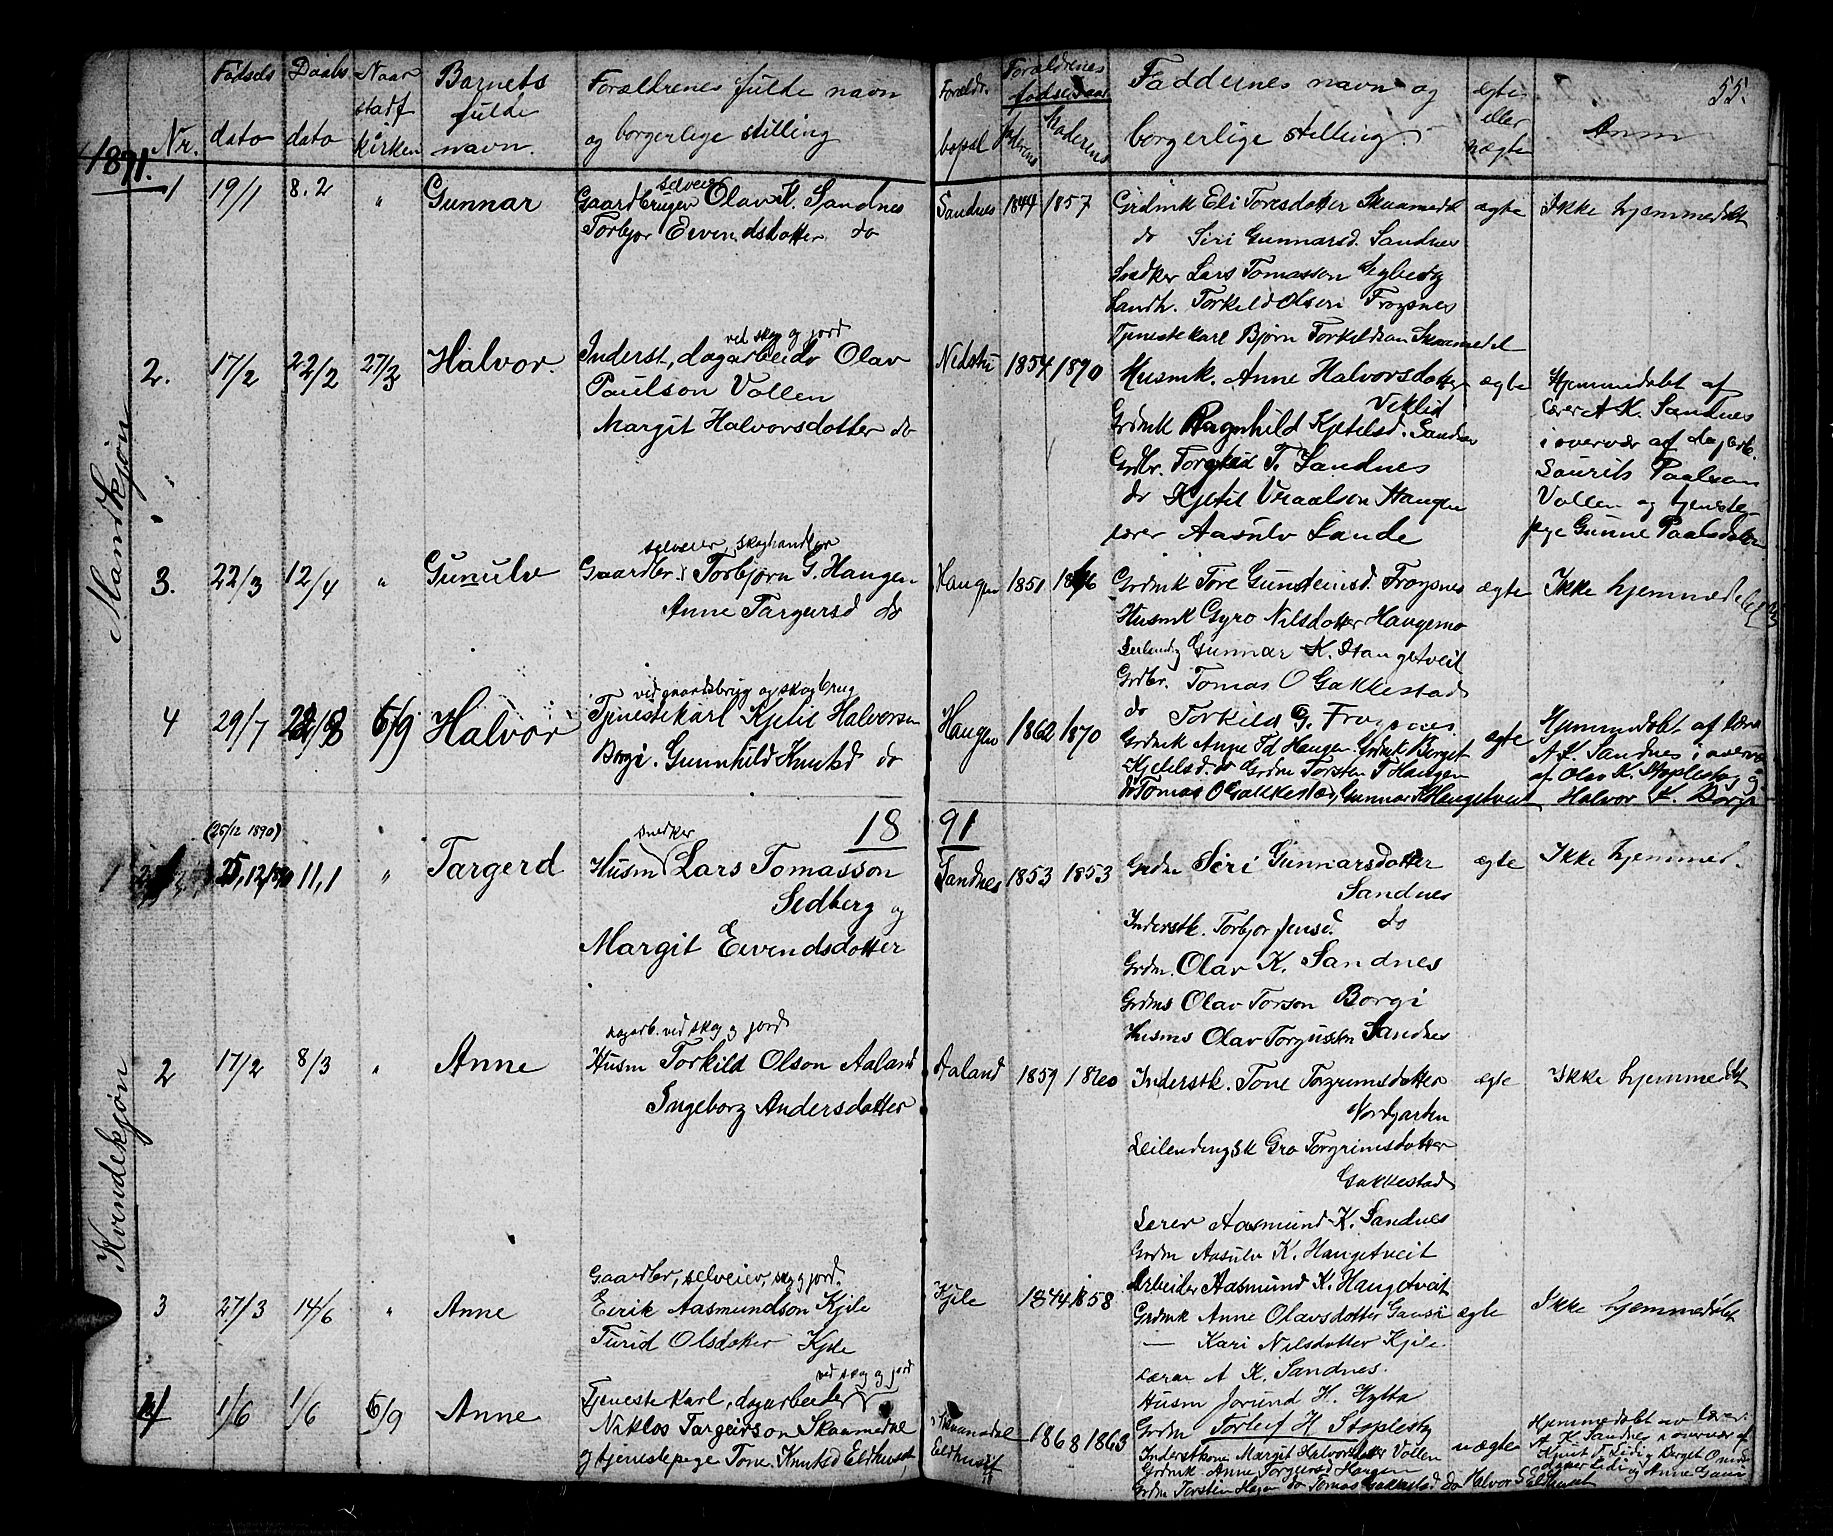 55.
1891.
Nr.
Fødsels
dato
Daabs
dato
Naar
stadf
kirken
Barnets
fulde
navn.
Forældrenes fulde navn
og borgerlige stilling
Forældr.
bopæl
Forældrenes
fødselsaar
faderens
Moderens
Faddernes navn og
borgerlige stilling.
ægte
eller
uægte
Anm
Mandkjøn
1 19/1 8.2 " Gunnar
selveier
Gaardbruger Olav K. Sandnes
Torbjor Eivendsdotter do
Sandnes 1844 1857
Grdmk Eli Toresdotter Skaamedal
do Siri Gunnarsd. Sandnes
Snedker Lars Tomasson
Landh. Torkild Olsen Froysnes
Tjenestekarl Bjørn Torkildson Skaamedal
ægte
Ikke hjemmedøbt
2. 17/2 22/2 27/3 Halvor.
ved skog og jord
Inderst, dagarbeider Olav
Paulson Vollen
Margit Halvorsdotter do
1854 1870
Husmk. Anne Halvorsdotter
Veklid
Grdmk Ragnhild Kjetilsd. Sandnes
Grdbr. Torgeid T. Sandnes
do Kjetil Vraalson Haugen
Lærer Aasulv Lande
ægte
Hjemmedøbt af
lærer A K. Sandnes
i overvær af dagarb.
Laurits Paalson
Vollen og tjeneste-
pige Gunne Paalsdotter
3. 22/3 12/4 " Gunulv
selveier, skoghandler
Gaardbr. Torbjørn G. Haugen
Anne Targersd do
Haugen 1851
Grdmk Tore Gundeinsd. Froysnes
Husmk Gyro Nilsdotter Haugemo
Leilendig Gunnar K. Haugetveit
Grdbr. Tomas O Gakkestad
do Torkild G. Froysnes
ægte
Ikke hjemmedøbt
4 29/7 5/9 Halvor
ved gaardsbrug og skogbrug
Tjenestekarl Kjetil Halvorsen
Borgi. Gunnhild Knutsd do
Haugen 1862 1870
Grdmk Anne Td. Haugen. Grdmk Borgit
Kjetilsd. do Grdm Torsten T Haugen
do Tomas O Gakkestad, Gunnar K Haugetveit
ægte
Hjemmedøbt af lærer
A K. Sandnes i overvær
af Olav K. Stoplestog og
Halvor K. Borgi
18 91
Kvindekjøn
(25/12 1890)
1 11,1 " Targerd
snedker
Husm Lars Tomasson
Sedberg og
Margit Eivendsdotter
Sandnes 1853 1853
Grdm Siri Gunnarsdotter
Sandnes
Inderstk. Torbjor Jensd. do
Grdm. Olav K. Sandnes
Grdms Olav Torson Borgi
Husms Olav Torgussen Sandnes
ægte
Ikke hjemmed.
2 17/2 8/3 " Anne
dagarb. ved skog og jord
Husm Torkild Olson Aaland
Ingeborg Andersdotter
Aaland 1859 1860
Inderstk. Tone Torgrimsdotter
Nordgarten
Leilendingsk Gro Torgrimsdotter
Gakkestad
Lærer Aasmund K. Sandnes
Grdm Aasulv K. Haugetveit
Arbeider Aasmund K. Haugetveit
ægte
Ikke hjemmedøbt
3 27/3 14/6 " Anne
Gaardbr, selveier, skog og jord.
Eirik Aasmundson Kjile
Turid Olsdotter Kjile
Kjile 1844 1858
Grdmk Anne Olavsdotter
— Kari Nilsdotter Kjile
Lærar A K. Sandnes.
Husm Jorund H. Hytta
Grdm Torleif H Stoplestog
ægte
Ikke hjemmedøbt
4 1/6 1/6 6/9 Anne
ved skog og jord
Tjenestekarl, dagarbeider
Niklos Targeirson Skaamedal
og tjenestepige Tone Knutsd Eldhuset
Skaamedal
Eldhuset
1868 1863
Inderstkone Margit Halvorsdotter Vollen
Grdmk. Anne Torgersd Haugen
Grdm Torsten Haugen do Tomas Gakkestad do Halvor
uægte
Hjemmedøbt av lærer
A K. Sandnes i overvær af
Knut T Eidi og Borget
Eidi og Anne